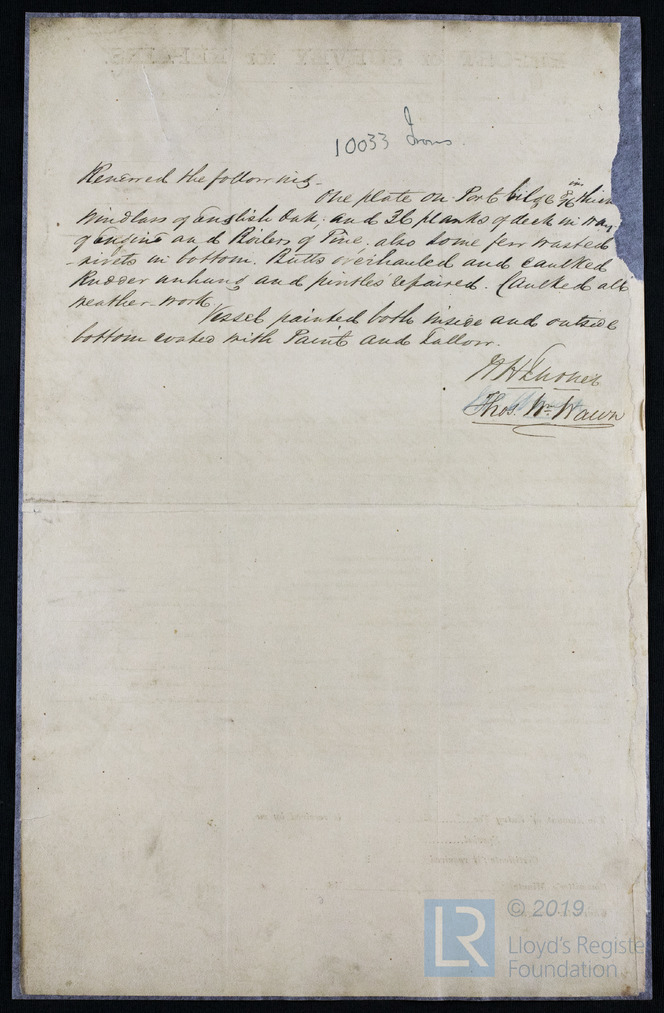 10033 Irons.
Renewed the following -
One plate on Port bilge 9/16 in thick
Windlass of English Oak, and 36 planks of deck in way
of Engine and Boilers of Pine, also some few wasted
rivets in bottom. Butts overhauled and caulked
Rudder unhung and pintles repaired. Caulked all
weather-work,
Vessel painted both inside and outside
bottom coated with Paint and tallow.
Thos. Wm. Wawn
© 2019
LR Lloyd's Registe
Foundation